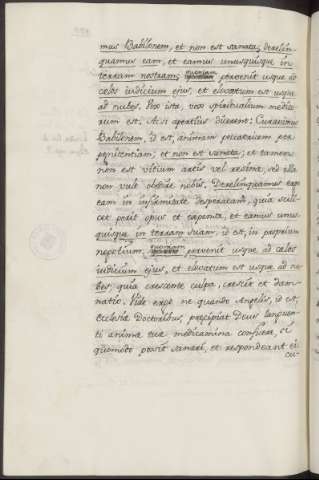 mus Babilonem, et non est sanata; derelin-
quamus eam, et eamus unusquisque in
terram nostram; quoniam pervenit usque ad
celos iudicium ejus, et elevatum est usque
ad nubes. Vox ista, vox spiritualium medico-
rum est. Ac si apertius dicerent: Curavimus
Babilonem, id est, animam peccatricem per
penitentiam; et non est sanata; et tamen
non est vitium artis vel resina, sed illa
non vult obedire nobis. Derelinquamus ergo
eam in infirmitate desperatam, quia scili-
cet perit opus et expensa, et eamus unus-
quisque in terram suam, id est, in proprium
negotium, quoniam pervenit usque ad celos
iudicium ejus, et elevatum est usque ad nu-
bes, quia crescente culpa, crescit et dam-
natio. Vide ergo ne quando Angelis, id est,
Ecclesiæ Doctoribus, precipiat Deus languen-
ti anime tue medicamina conficere, si
quomodo possit sanari, et respondeant ei
cu-